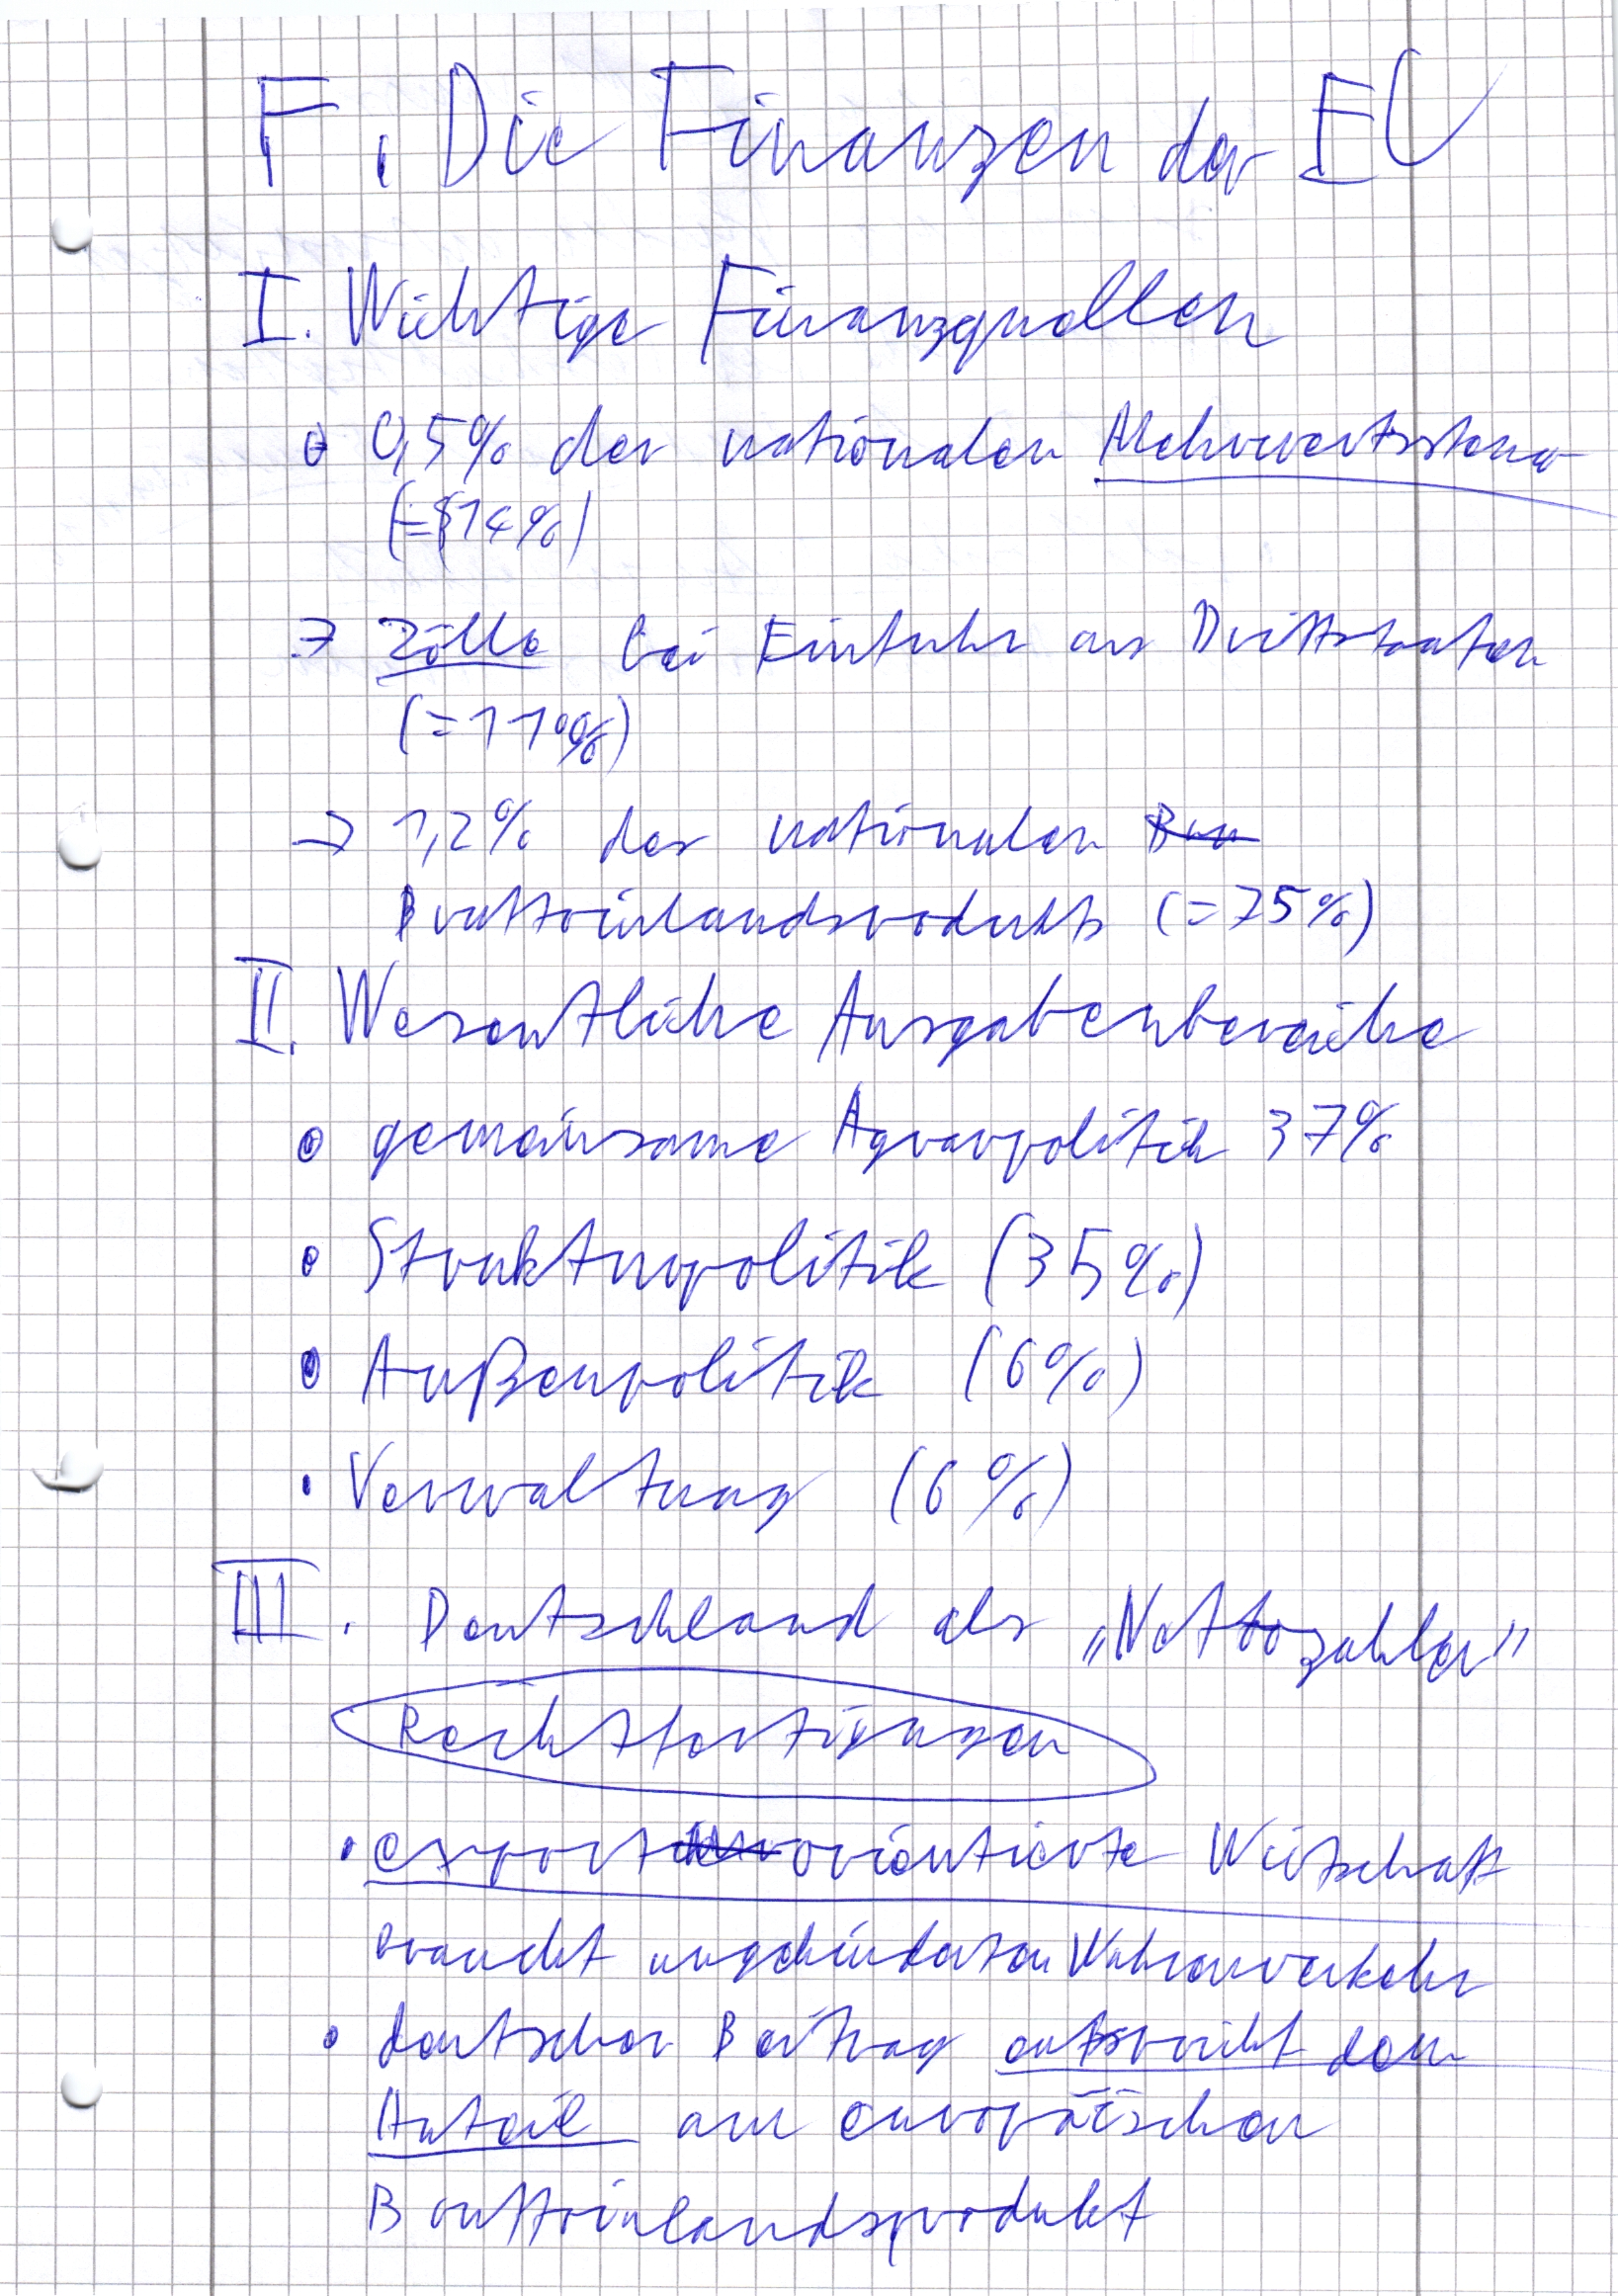 F. Die Finanzen der EU
I. Wichtige Finanzquellen
• 0,5% der nationalen Mehrwertssteuer
(=14%)
→ Zölle bei Einfuhr aus Drittstaaten
(=11%)
→ 1,2% des nationalen
Bruttoinlandsprodukts (=75%)
II. Wesentliche Ausgabenbereiche
• gemeinsame Agrarpolitik 37%
• Strukturpolitik (35%)
• Außenpolitik (6%)
• Verwaltung (6%)
III. Deutschland als „Nettozahler"
Rechtfertigungen
• exportorientierte Wirtschaft
braucht ungehinderten Wahrenverkehr
• deutscher Beitrag entspricht dem
Anteil am europäischen
Bruttoinlandsprodukt